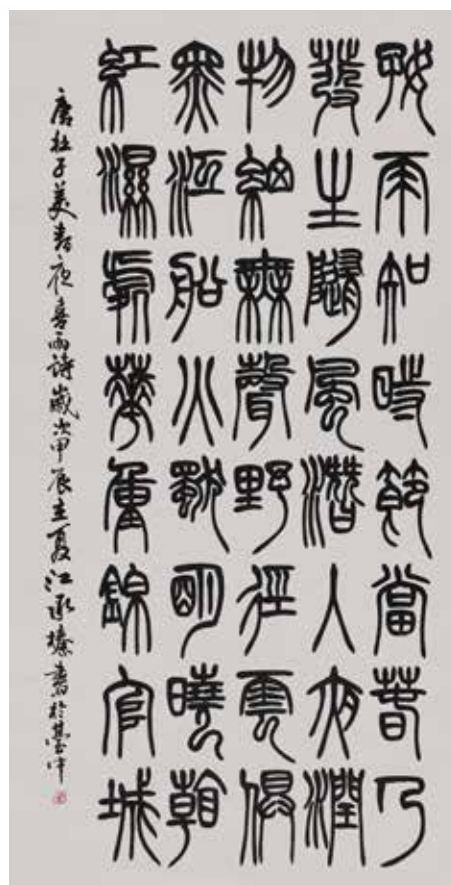 好雨知時節當春乃
發生隨風潛入夜潤
物細無聲野徑雲俱
黑江船火獨明曉看
紅濕處華重錦官城
唐杜子美春夜喜雨詩歲次甲辰立夏江承榛書於臺中